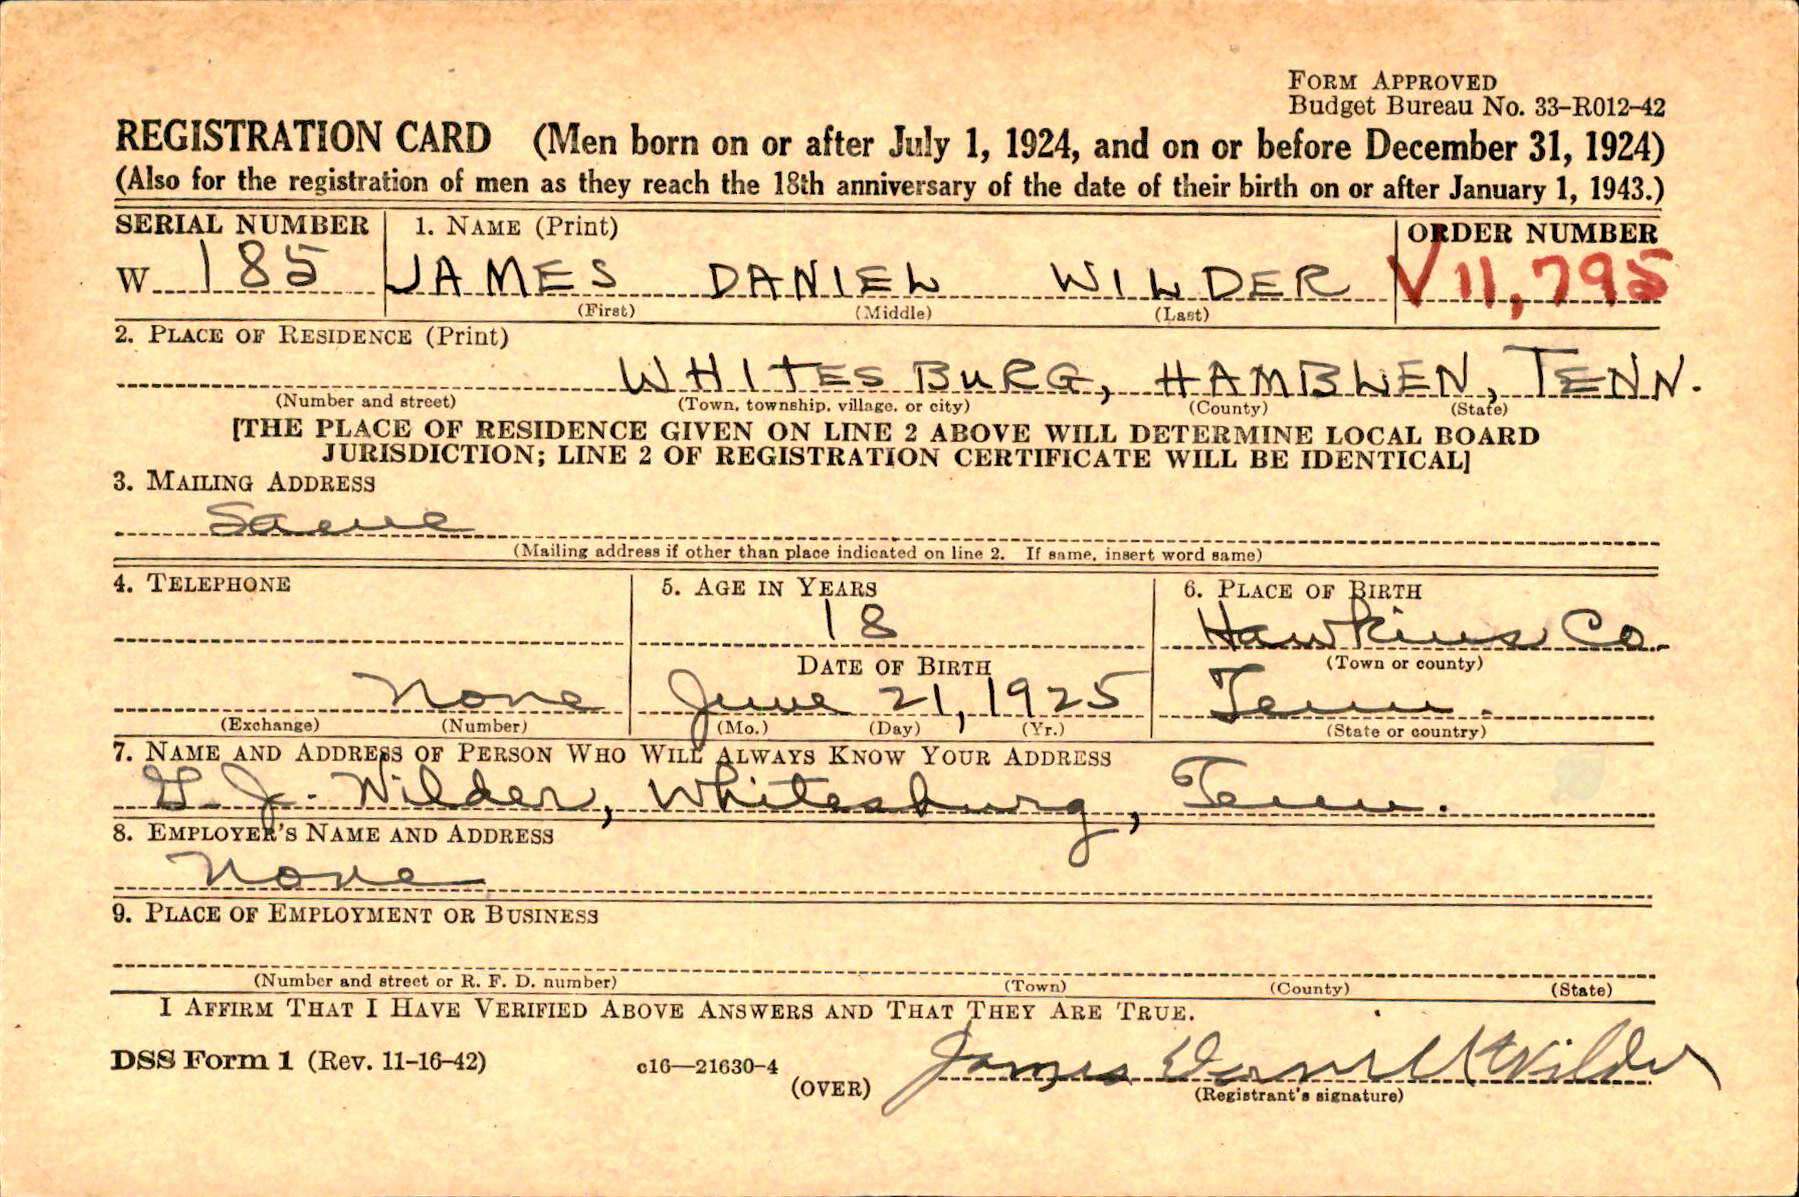 FORM APPROVED
Budget Bureau No. 33–R012–42
REGISTRATION CARD (Men born on or after July 1, 1924, and on or before December 31, 1924)
(Also for the registration of men as they reach the 18th anniversary of the date of their birth on or after January 1, 1943.)
SERIAL NUMBER 1. NAME (Print) ORDER NUMBER
W 185 JAMES DANIEL WILDER V11,795
(First) (Middle) (Last)
2. PLACE OF RESIDENCE (Print)
WHITESBURG, HAMBLEN, TENN.
(Number and street) (Town, township, village, or city) (County) (State)
[THE PLACE OF RESIDENCE GIVEN ON LINE 2 ABOVE WILL DETERMINE LOCAL BOARD
JURISDICTION; LINE 2 OF REGISTRATION CERTIFICATE WILL BE IDENTICAL]
3. MAILING ADDRESS
Same
(Mailing address if other than place indicated on line 2. If same, insert word same)
4. TELEPHONE 5. AGE IN YEARS 6. PLACE OF BIRTH
18 Hawkins Co.
DATE OF BIRTH (Town or county)
None June 21, 1925 Tenn.
(Exchange) (Number) (Mo.) (Day) (Yr.) (State or country)
7. NAME AND ADDRESS OF PERSON WHO WILL ALWAYS KNOW YOUR ADDRESS
G. J. Wilder, Whitesburg, Tenn.
8. EMPLOYER'S NAME AND ADDRESS
None
9. PLACE OF EMPLOYMENT OR BUSINESS
(Number and street or R. F. D. number) (Town) (County) (State)
I AFFIRM THAT I HAVE VERIFIED ABOVE ANSWERS AND THAT THEY ARE TRUE.
DSS Form 1 (Rev. 11–16–42) c16—21630–4 James Daniel Wilder
(OVER) (Registrant's signature)